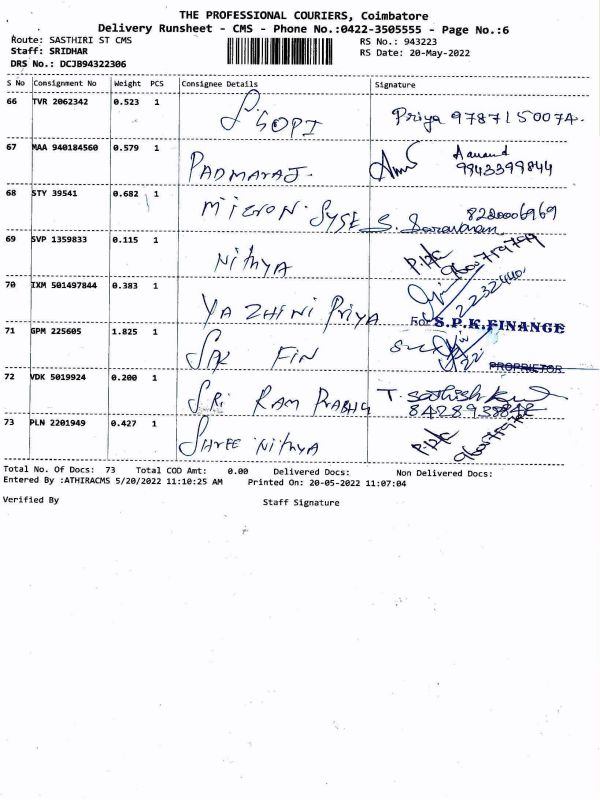 THE PROFESSIONAL COURIERS, Coimbatore
Delivery Runsheet - CMS - Phone No.:0422-3505555 - Page No.:6
Route: SASTHIRI ST CMS
Staff: SRIDHAR
DRS No.: DCJB94322306
RS No.: 943223
RS Date: 20-May-2022
S No Consignment No Weight PCS Consignee Details Signature
66 TVR 2062342 0.523 1 S. GOPI Priya 9787150074.
67 MAA 940184560 0.579 1 PADMARAJ. Anand
9943399844
68 STY 39541 0.682 1 MICRON. SYSE S. Saravanan 8220006969
69 SVP 1359833 0.115 1 NITHYA
70 IXM 501497844 0.383 1 YAZHINI PRIYA 2232440
For S.P.K.FINANCE
71 GPM 225605 1.825 1 SPK FIN
PROPRIETOR
72 VDK 5019924 0.200 1 SRI RAM PRABHU T. Sathish
73 PLN 2201949 0.427 1 SHREE NITHYA
Total No. Of Docs: 73 Total COD Amt: 0.00 Delivered Docs: Non Delivered Docs:
Entered By :ATHIRACMS 5/20/2022 11:10:25 AM Printed On: 20-05-2022 11:07:04
Verified By Staff Signature